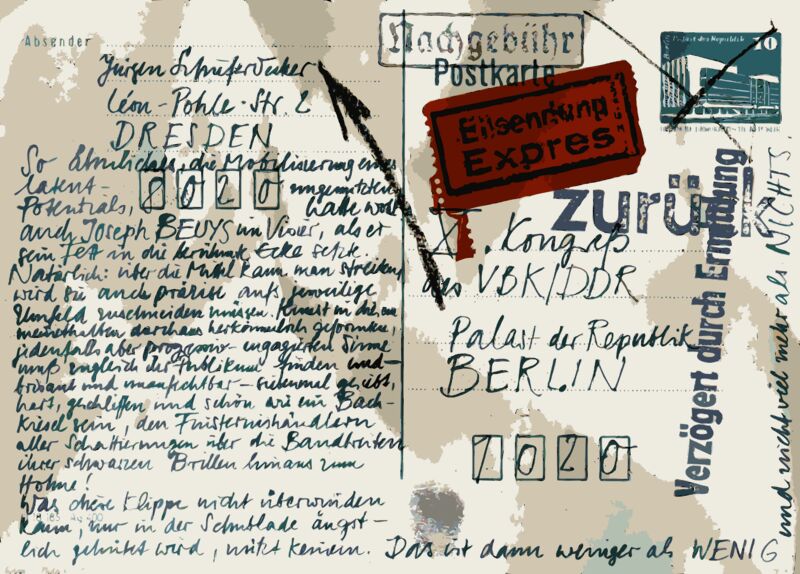 Absender
Jürgen Schieferdecker
Léon-Pohle-Str. 2
DRESDEN
8020
So Ähnliches, die Mobilisierung eines
latent-
ungenutzten
Potentials, hatte wohl
auch Joseph BEUYS im Visier, als er
sein Fett in die berühmte Ecke setzte.
Natürlich: über die Mittel kann man streiten,
wird sie auch präzise aufs jeweilige
Umfeld zuschneiden müssen. Kunst in die
meinethalben durchaus herkömmlich geformten,
jedenfalls aber progressiv-engagierten Sinne
muß zugleich ihr Publikum finden und –
brisant und unanfechtbar – siebenmal gesiebt,
hart, geschliffen und schön wie ein Bach-
kiesel sein, den Finsternishändlern
aller Schattierungen über die Bandbreiten
ihrer schwarzen Brillen hinaus zum
Hohne!
Was diese Klippe nicht überwinden
kann, nur in der Schublade ängst-
lich gehütet wird, nützt keinem. Das ist dann weniger als WENIG
und nicht viel mehr als NICHTS.
Nachgebühr
Postkarte
Eilsendung
Expres
Palast der Republik
10
zurück
XI. Kongreß
des VBK/DDR
Palast der Republik
BERLIN
1020
Verzögert durch Ermittlung